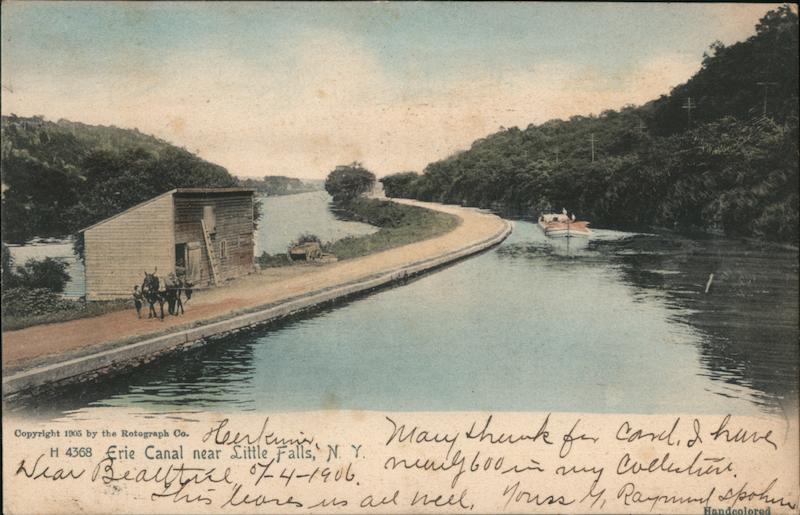 Copyright 1905 by the Rotograph Co.
H 4368 Erie Canal near Little Falls, N. Y.
Herkimer,
Dear 7-4-1906.
This leaves us all well.
Many thanks for Card. I have
nearly 600 in my Collection.
Yours Raymond
Handcolored